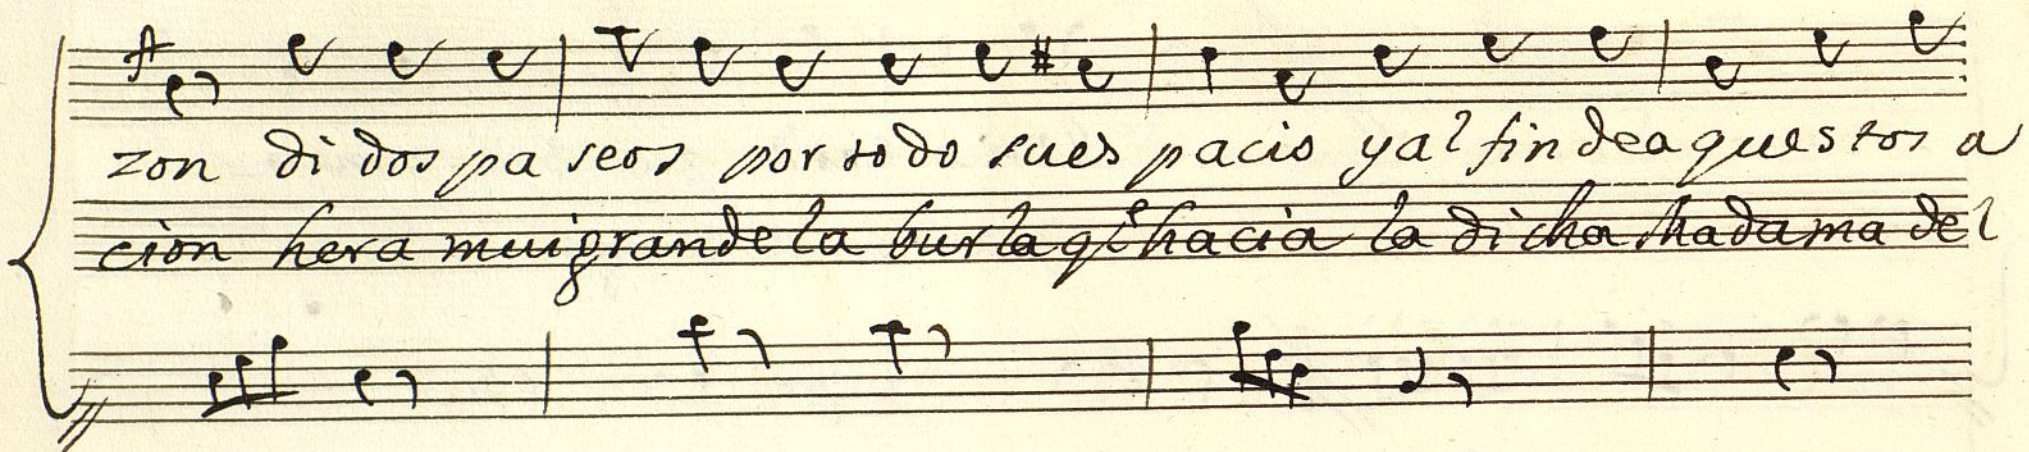 zon di dos pa seos por to do su es pacio y al fin de a ques tos a
cion hera mui grande la burla qe hacia la dicha Madama del